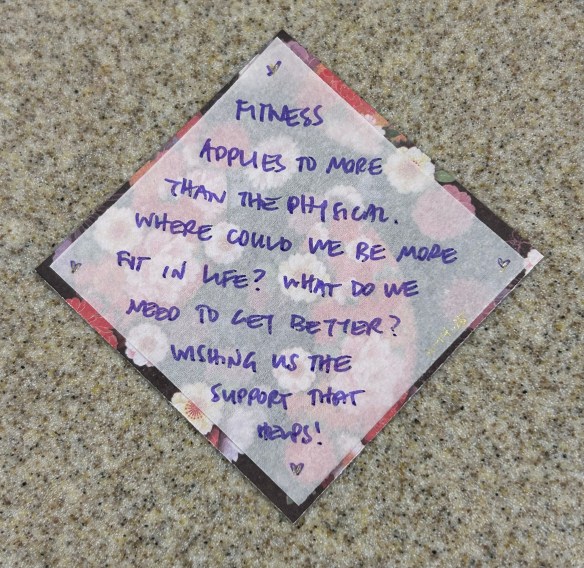 FITNESS
APPLIES TO MORE
THAN THE PHYSICAL.
WHERE COULD WE BE MORE
FIT IN LIFE? WHAT DO WE
NEED TO GET BETTER?
WISHING US THE
SUPPORT THAT
HELPS!